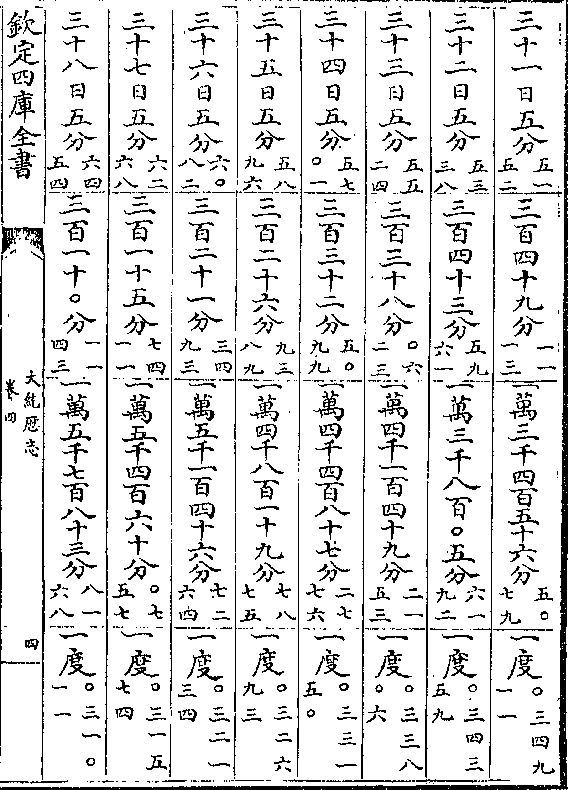 三十一日五分五一五二 三百四十九分一一一三 一萬三千四百五十六分五〇七九 一度〇三四九一一
三十二日五分五三三八 三百四十三分五九六一 一萬三千八百〇五分六一九二 一度〇三四三五九
三十三日五分五五二四 三百三十八分〇六二三 一萬四千一百四十九分二一五三 一度〇三三八〇六
三十四日五分五七〇一 三百三十二分五〇九九 一萬四千四百八十七分二七七六 一度〇三三一五〇
三十五日五分五八九六 三百二十六分九三八九 一萬四千八百一十九分七八七五 一度〇三二六九三
三十六日五分六〇八二 三百二十一分三四九三 一萬五千一百四十六分七二六四 一度〇三二一三四
三十七日五分六二六八 三百一十五分七四一一 一萬五千四百六十分〇七五七 一度〇三一五七四
三十八日五分六四五四 三百一十〇分一一四三 一萬五千七百八十三分八一六八 一度〇三一〇一一
欽定四庫全書
大統歷志
卷四
四